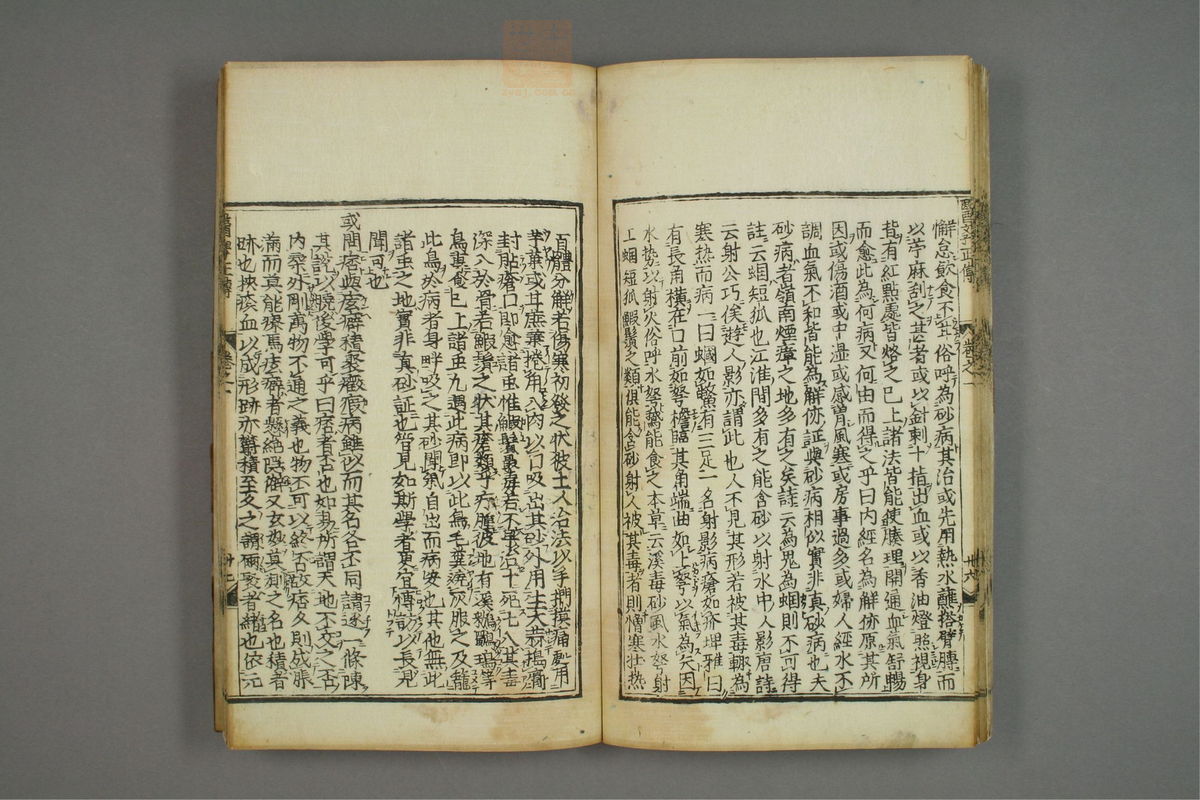 懈怠飲食不進俗呼為砂病其治或先用熱水蘸搭臂膊而
以苧麻刮之甚者或以針刺十指出血或以香油燈照視身
背有紅點處皆烙之已上諸法皆能使腠理開通血氣舒暢
而愈此為何病又何由而得之乎曰内經名為解㑊原其所
因或傷酒或中湿或感冒風寒或房事過多或婦人經水不
調血氣不和皆能為解㑊証與砂病相似實非真砂病也夫
砂病者嶺南煙瘴之地多有之矣詩云為鬼為蜮則不可得
註云蜮短狐也江淮間多有之能含砂以射水中人影唐詩
云射公巧俟遊人影亦謂此也人不見其形若被其毒輙為
寒熱而病一曰蜮如鱉有三足一名射影病瘡如疥埤雅曰
有長角橫在口前如弩檐臨其角端曲如上弩以氣為矢因
水势以射人俗呼水弩鵞能食之本草云溪毒砂風水弩射
工蜮短狐蝦鬚之類俱能含砂射人被其毒者則憎寒壮热
百體分解若傷寒初發之状彼土人治法以手捫摸痛處用
芋葉或甘庶葉捲角入内以口吸出其砂外用生大蒜搗膏
封貼瘡口即愈諸虫惟蝦鬚最毒若不早治十死七八其毒
深入於骨若蝦鬚之状其瘡類乎疔腫彼地有溪鵝鸂鶒等
鳥糞愈已上諸虫凢遇此病即以此鳥毛糞燒灰服之及籠
此鳥於病者身畔吸之其砂聞氣自出而病安也其他無此
諸虫之地實非真砂証也管見如斯學者更宜博訪以長見
聞可也
或問痞與痃癖積聚癥瘕病雖似而其名各不同請逐一條陳
其詳以曉後學可乎曰痞者否也如易所謂天地不交之否
内柔外剛萬物不通之義也物不可以終否故痞久則成脹
滿而莫能療焉痃癖者懸絕隱僻又玄妙莫測之名也積者
跡也挾痰血以成形跡亦欝積至久之謂爾聚者緒也依元
醫學正傳
卷之一